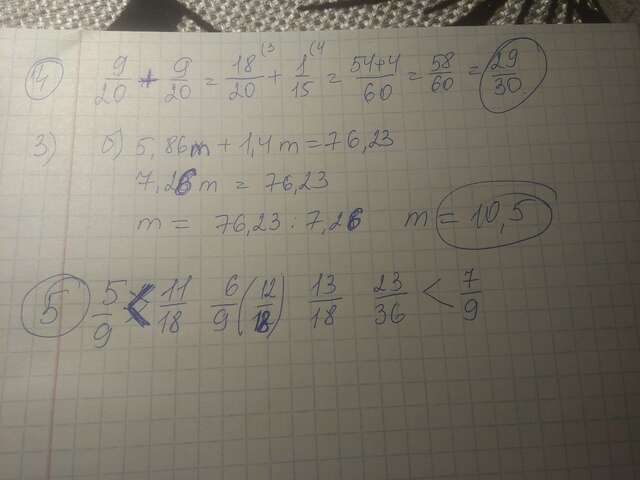 14) 9/20 + 9/20 = 18/20 (3 + 1/15 (4 = 54+4/60 = 58/60 = 29/30
3) б) 5,86m + 1,4m = 76,23
7,26m = 76,23
m = 76,23 : 7,26 m = 10,5
5 5/9 < 11/18 6/9 (12/18) 13/18 23/36 < 7/9